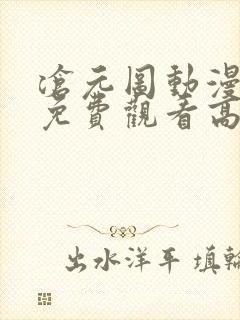 滄元圖動漫
免費觀看高
出水洋平 填輪